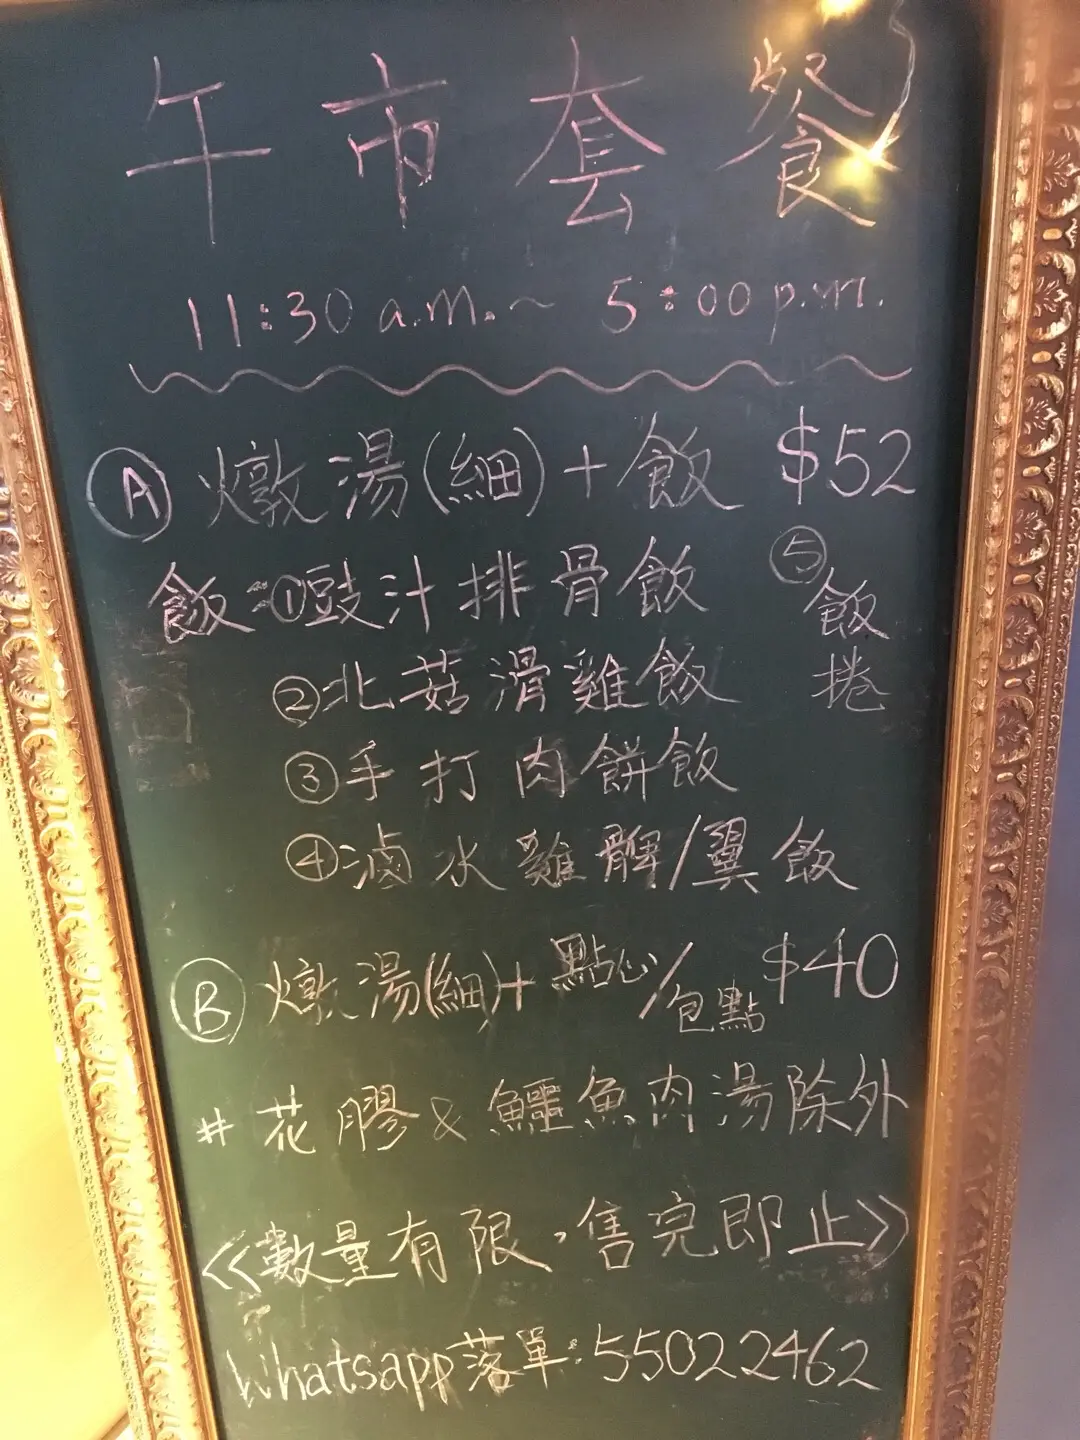 午市套餐
11:30 a.m. ~ 5:00 p.m.
Ⓐ 燉湯(細)+飯 $52
飯:①豉汁排骨飯
②北菇滑雞飯
③手打肉餅飯
④滷水雞髀/翼飯
⑤飯捲
Ⓑ 燉湯(細)+點心/包點 $40
# 花膠 & 鱷魚肉湯除外
《數量有限,售完即止》
Whatsapp落單:55022462